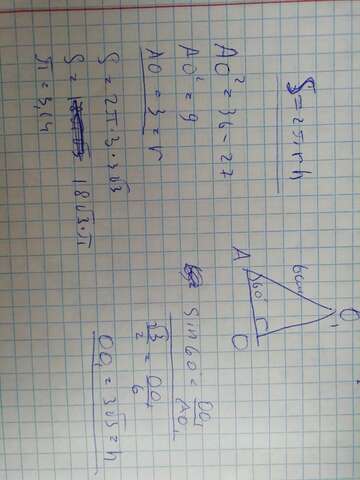 S = 2πrh
AO² = 36 - 27
AO² = 9
AO = 3 = r
S = 2π · 3 · 3√3
S = 18√3 · π
π = 3,14
A
60°
6см
O₁
O
sin 60° = OO₁/AO₁
√3/2 = OO₁/6
OO₁ = 3√3 = h